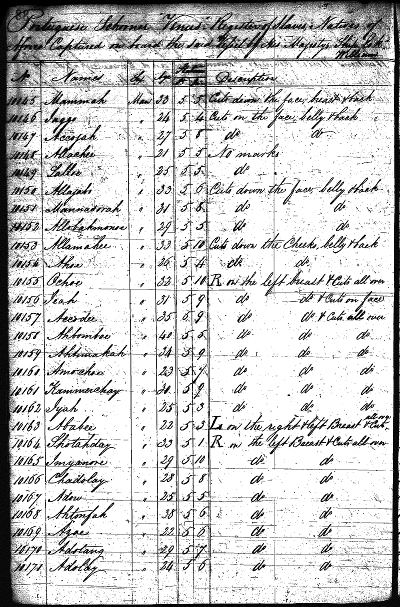 Portuguese Schooner "Venus" Register of Slaves Natives of
Africa Captured on board the said Vessel by His Majesty's Ship
No. Names Sex Age Description
10145 Mammah Man 33 5 5 Cuts down the face, breast & back
10146 Jaggo " 24 5 4 Cuts on the face, belly & back
10147 " 27 5 8 do do
10148 Allachee " 21 5 5 No marks
10149 Lallee " 25 5 5 do
10150 Allajabo " 33 5 6 Cuts down the face, belly & back
10151 Mannadorah " 31 5 do do
10152 " 29 5 5 do do
10153 Allamahee " 33 5 10 Cuts down the Cheeks, belly & back
10154 Ahou " 26 5 4 do do
10155 Ochoe " 32 5 10 R on the left breast & Cuts all over
10156 Jeah " 31 5 9 do do & Cuts on face
10157 Acordee " 35 5 9 do do & Cuts all over
10158 Ahbomboe " 40 5 5 do do do
10159 Ahhinakah " 34 5 9 do do do
10160 Amochee " 23 5 7 do do do
10161 Kammerchay " 30 5 9 do do do
10162 Iyah " 25 5 3 do do do
10163 Ababee " 22 5 3 La on the right & left Breast & Cuts all over
10164 Shotahday " 33 5 1 R on the left Breast & Cuts all over
10165 Imyamore " 29 5 10 do do
10166 Chadolay " 28 5 8 do do
10167 Adow " 25 5 5 do do
10168 Ahtonjah " 38 5 6 do do
10169 Agae " 22 5 6 do do
10170 Adolang " 29 5 7 do do
10171 Adolay " 24 5 6 do do